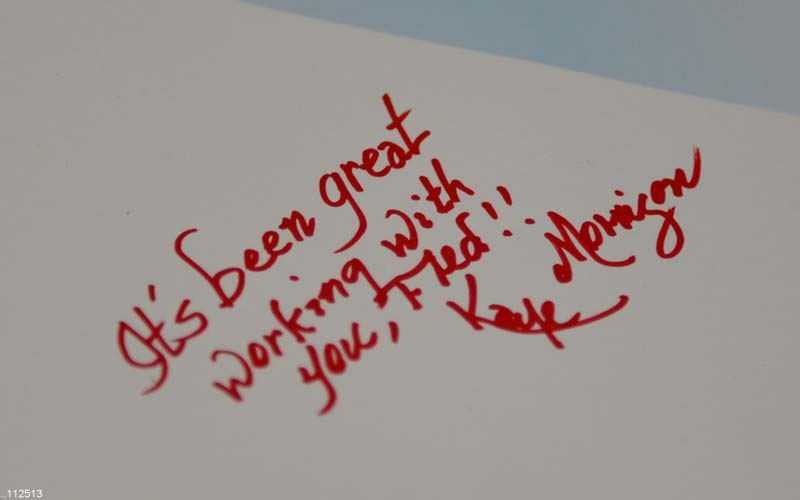 It's been great
working with
you, Fred!!
Kaye Morrison
..112513